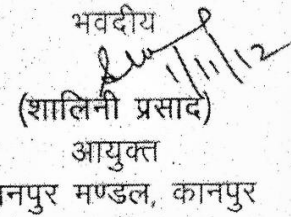 भवदीय
1/11/12
(शालिनी प्रसाद)
आयुक्त
नपुर मण्डल, कानपुर